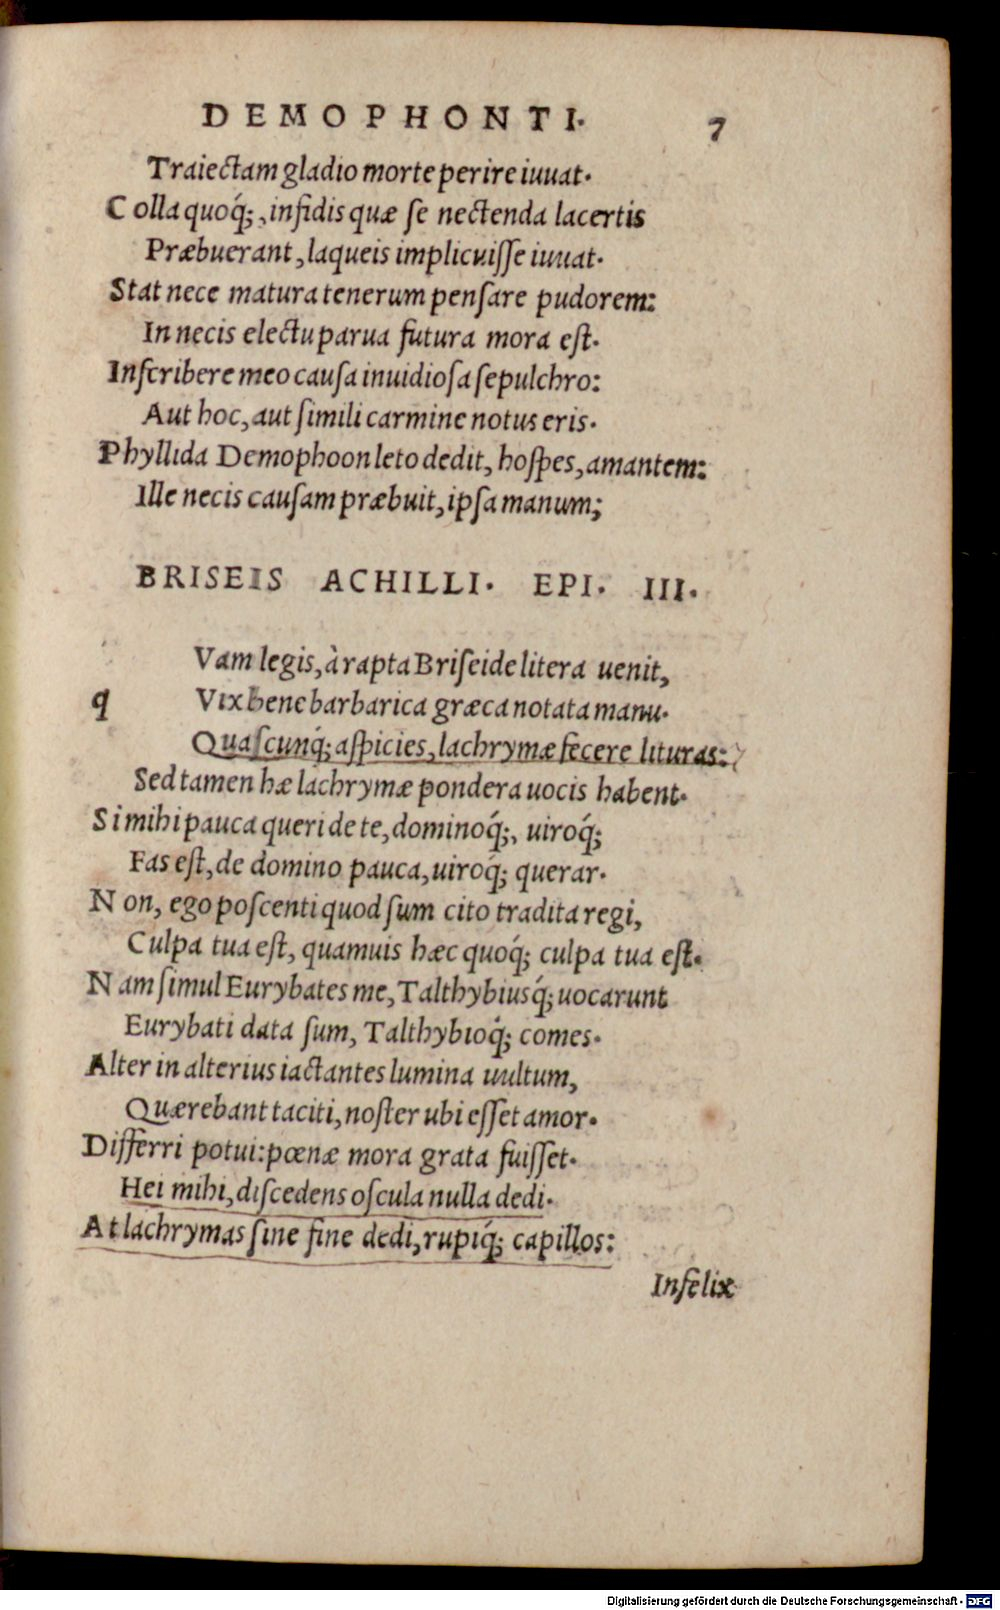 DEMOPHONTI. 7
Traiectam gladio morte perire iuuat.
Colla quoq́;, infidis quæ se nectenda lacertis
Præbuerant, laqueis implicuisse iuuat.
Stat nece matura tenerum pensare pudorem:
In necis electu parua futura mora est.
Inscribere meo causa inuidiosa sepulchro:
Aut hoc, aut simili carmine notus eris.
Phyllida Demophoon leto dedit, hospes, amantem:
Ille necis causam præbuit, ipsa manum;
BRISEIS ACHILLI. EPI. III.
Vam legis, à rapta Briseide litera uenit,
q Vix bene barbarica græca notata manu.
Quascunq́; aspicies, lachrymæ fecere lituras:
Sed tamen hæ lachrymæ pondera uocis habent.
Si mihi pauca queri de te, dominoq́;, uiroq́;
Fas est, de domino pauca, uiroq́; querar.
Non, ego poscenti quod sum cito tradita regi,
Culpa tua est, quamuis hæc quoq́; culpa tua est.
Nam simul Eurybates me, Talthybiusq́; uocarunt
Eurybati data sum, Talthybioq́; comes.
Alter in alterius iactantes lumina uultum,
Quærebant taciti, noster ubi esset amor.
Differri potui: pœnæ mora grata fuisset.
Hei mihi, discedens oscula nulla dedi.
At lachrymas sine fine dedi, rupiq́; capillos:
Infelix
Digitalisierung gefördert durch die Deutsche Forschungsgemeinschaft - DFG